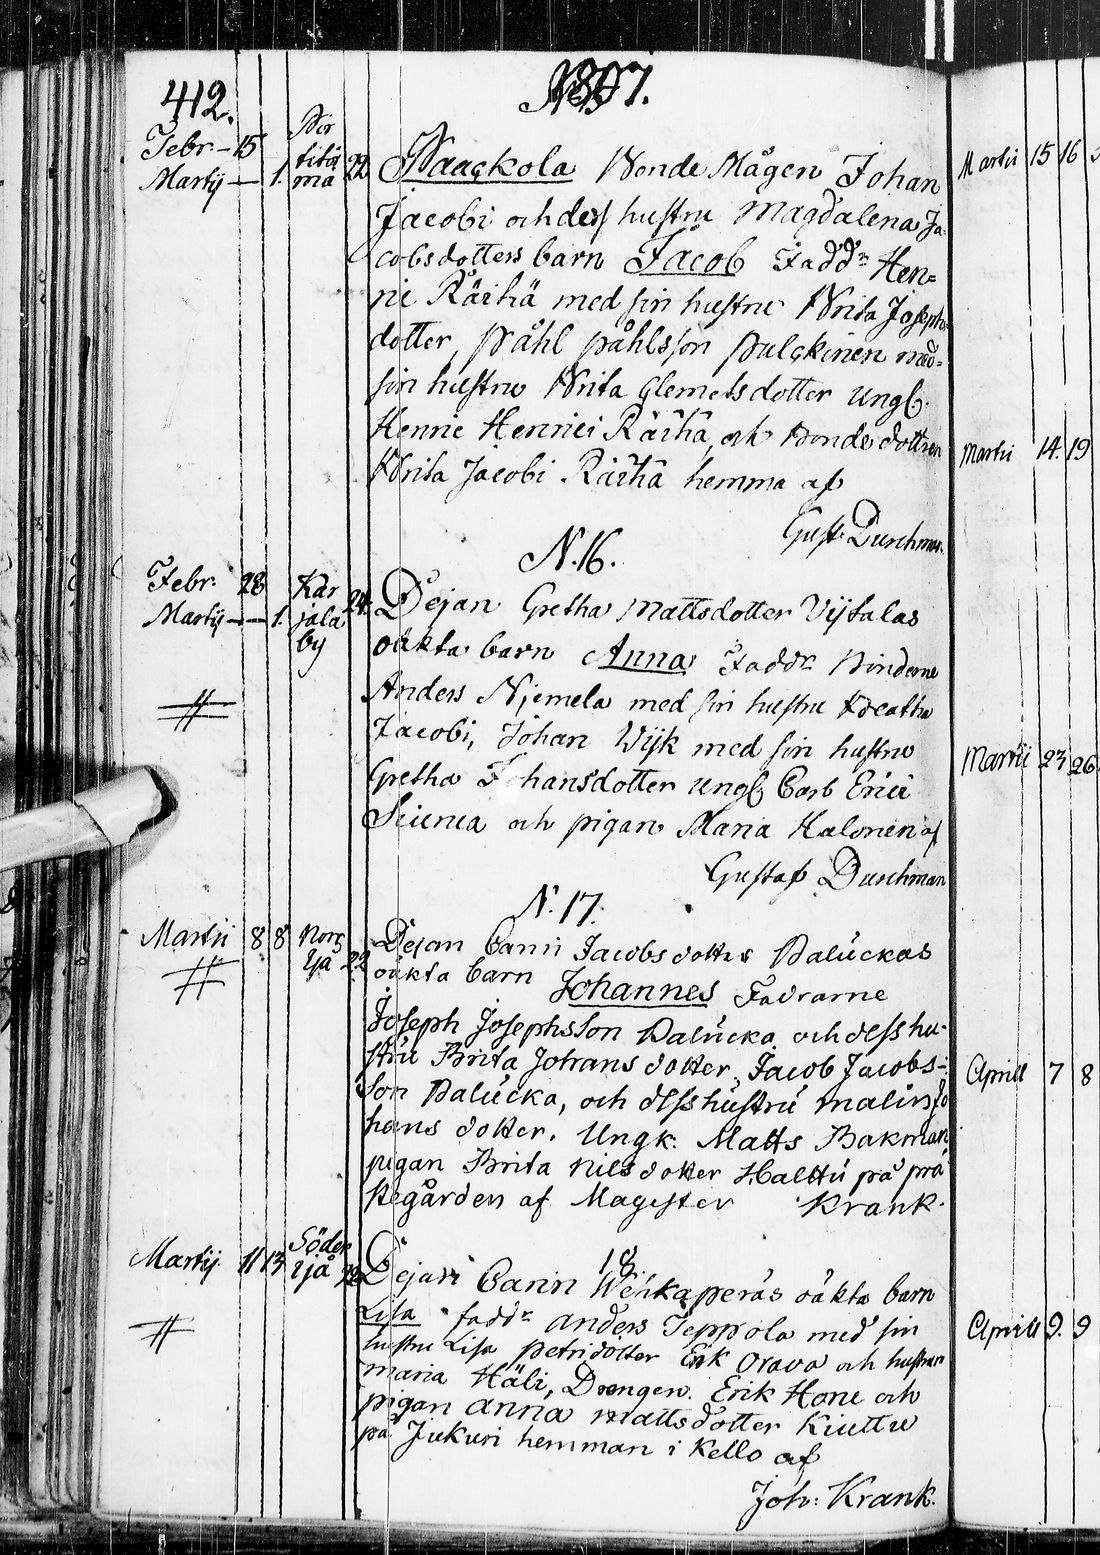 412.
1807.
Febr. 15
Martij 1.
22
Paackola Bonde Mågen Johan
Jacobi och dess hustru Magdalena Ja
cobsdotters barn Jacob Faddr Hen=
ric Räihä med sin hustru Brita Josephs
dotter, Påhl påhlsson Pulckinen med
sin hustru Brita Clemetsdotter Ungk.
Henric Henrici Räihä, och Bonde dottren
Brita Jacobi Räihä hemma af
Gust. Durchman.
N. 16.
Febr. 28
Martij 1.
Kar
jala
by
24.
Pejan Gretha Mattsdotter Vijtalas
oäkta barn Anna Faddr Bönderne
Anders Njemela med sin hustru Beatha
Jacobi, Johan Wijk med sin hustru
Gretha Johansdotter ungk Carl Erici
och pigan Maria Halonen af
Gustaf Durchman
N. 17.
Martii 8 8
22
Pejan Carin Jacobsdotters Paluckas
oäkta barn Johannes Fadrarne
Joseph Josephsson Palucka och dess hu-
stru Brita Johans dotter, Jacob Jacobs-
son Palucka, och dess hustru Malin Jo
hans dotter. Ungk. Matts Bakman
pigan Brita Nilsdotter Halttu på prä
stegården af Magister Krank.
18.
Martij 11 13
Söder
ijå
Pejan Carin oäkta barn
Lisa faddr Anders Seppola med sin
hustru Lisa Petridotter Erik Orava och hustrun
Maria Häli, Drengen Erik Hone och
pigan Anna Mattsdotter Kiuttu
på Jukuri hemman i Kello af
Joh: Krank.
Martii 15 16
Martii 14. 19
Martii 23 26
Aprill 7 8
Aprill 9. 9